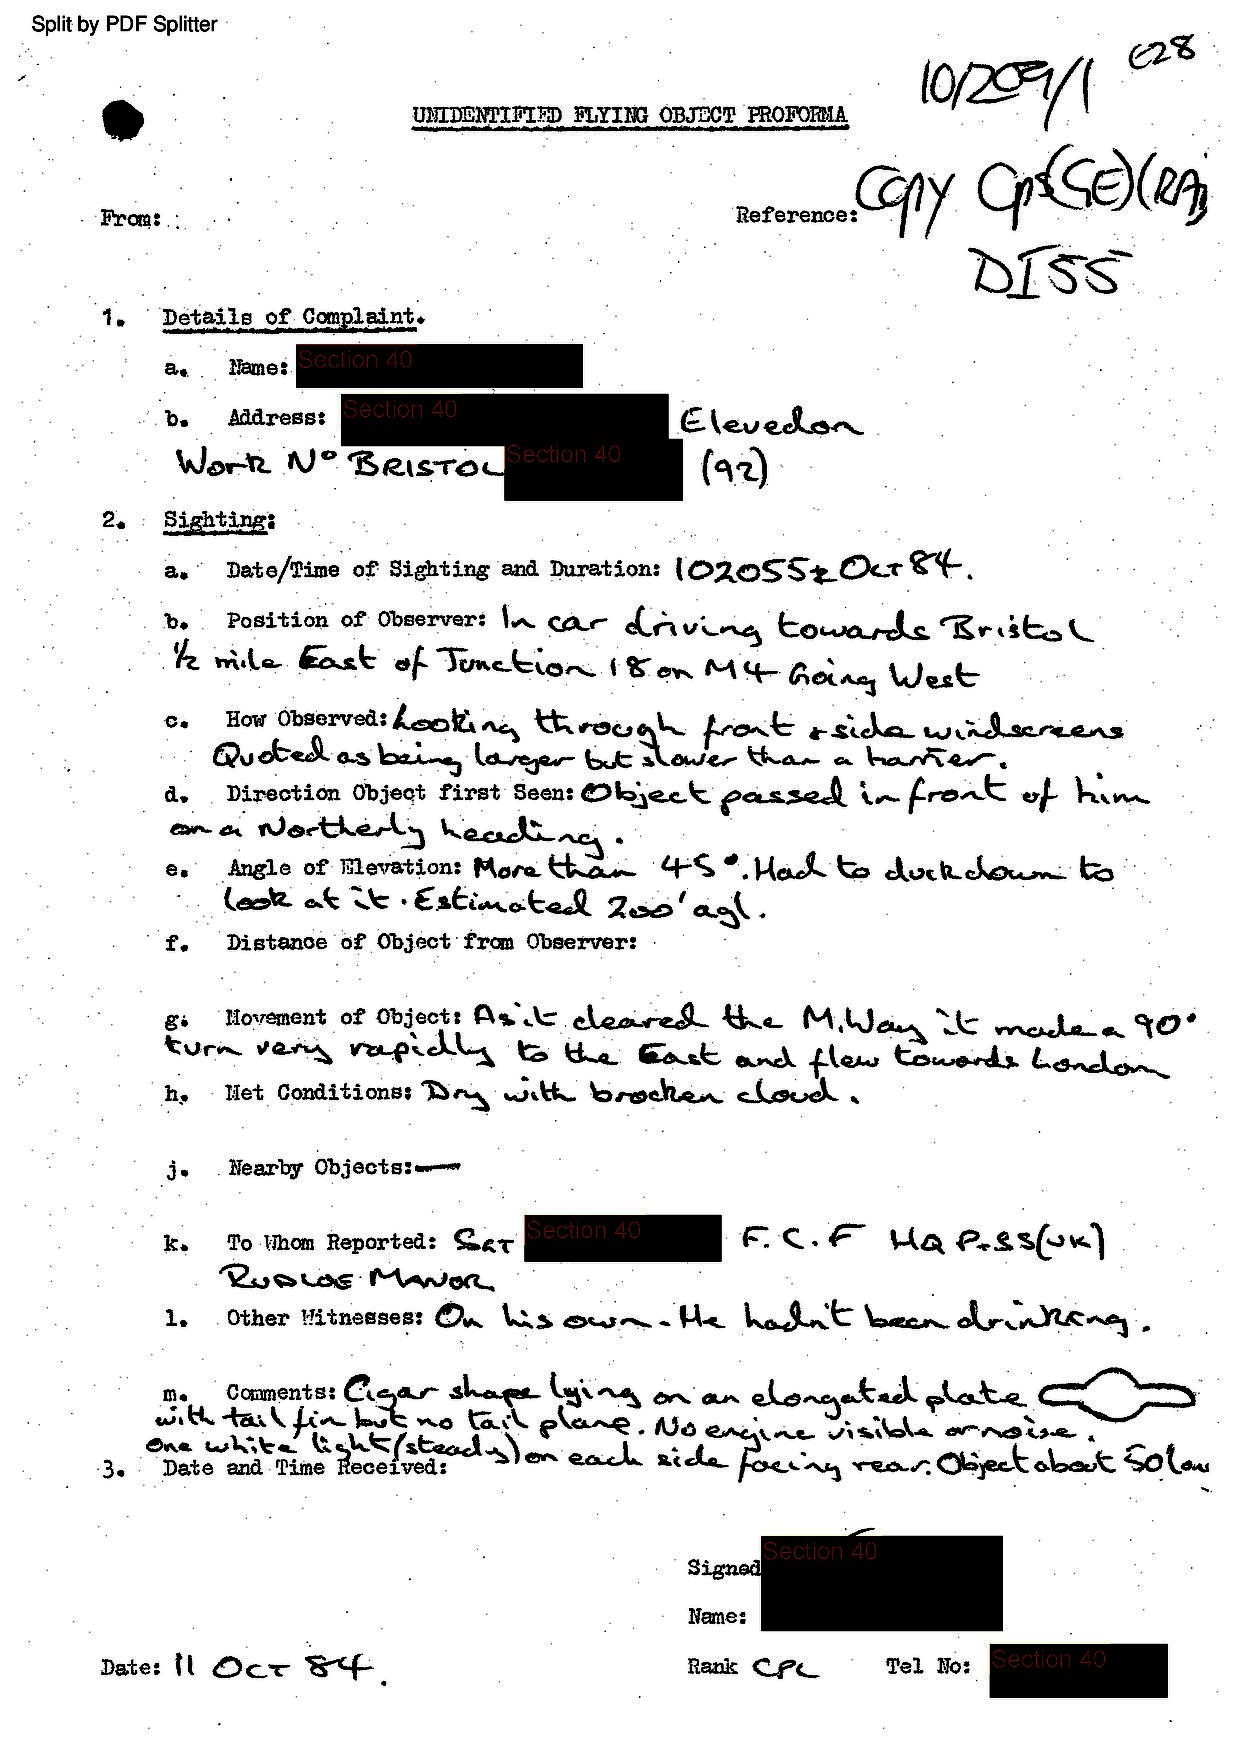 Split by PDF Splitter
E28
10/209/1
UNIDENTIFIED FLYING OBJECT PROFORMA
Copy Cps(GE)(RAF)
From:
Reference:
DI55
1. Details of Complaint.
a. Name: Section 40
b. Address: Section 40 Elevedon
Work No BRISTOL Section 40 (92)
2. Sighting:
a. Date/Time of Sighting and Duration: 102055z Oct 84.
b. Position of Observer: In car driving towards Bristol
1/2 mile East of Junction 18 on M4 Going West
c. How Observed: Looking through front + side windscreens
Quoted as being larger but slower than a harrier.
d. Direction Object first Seen: Object passed in front of him
on a Northerly heading.
e. Angle of Elevation: More than 45°. Had to duck down to
look at it. Estimated 200' agl.
f. Distance of Object from Observer:
g. Movement of Object: As it cleared the M.Way it made a 90°
turn very rapidly to the East and flew towards London
h. Met Conditions: Dry with brocken cloud.
j. Nearby Objects: —
k. To Whom Reported: SGT Section 40 F.C.F HQ P+SS(UK)
RUDLOE MANOR
l. Other Witnesses: On his own. He hadn't been drinking.
m. Comments: Cigar shape lying on an elongated plate
with tail fin but no tail plane. No engine visible or noise.
One white light (steady) on each side facing rear. Object about 50
3. Date and Time Received:
Signed Section 40
Name:
Date: 11 Oct 84.
Rank CPL Tel No: Section 40